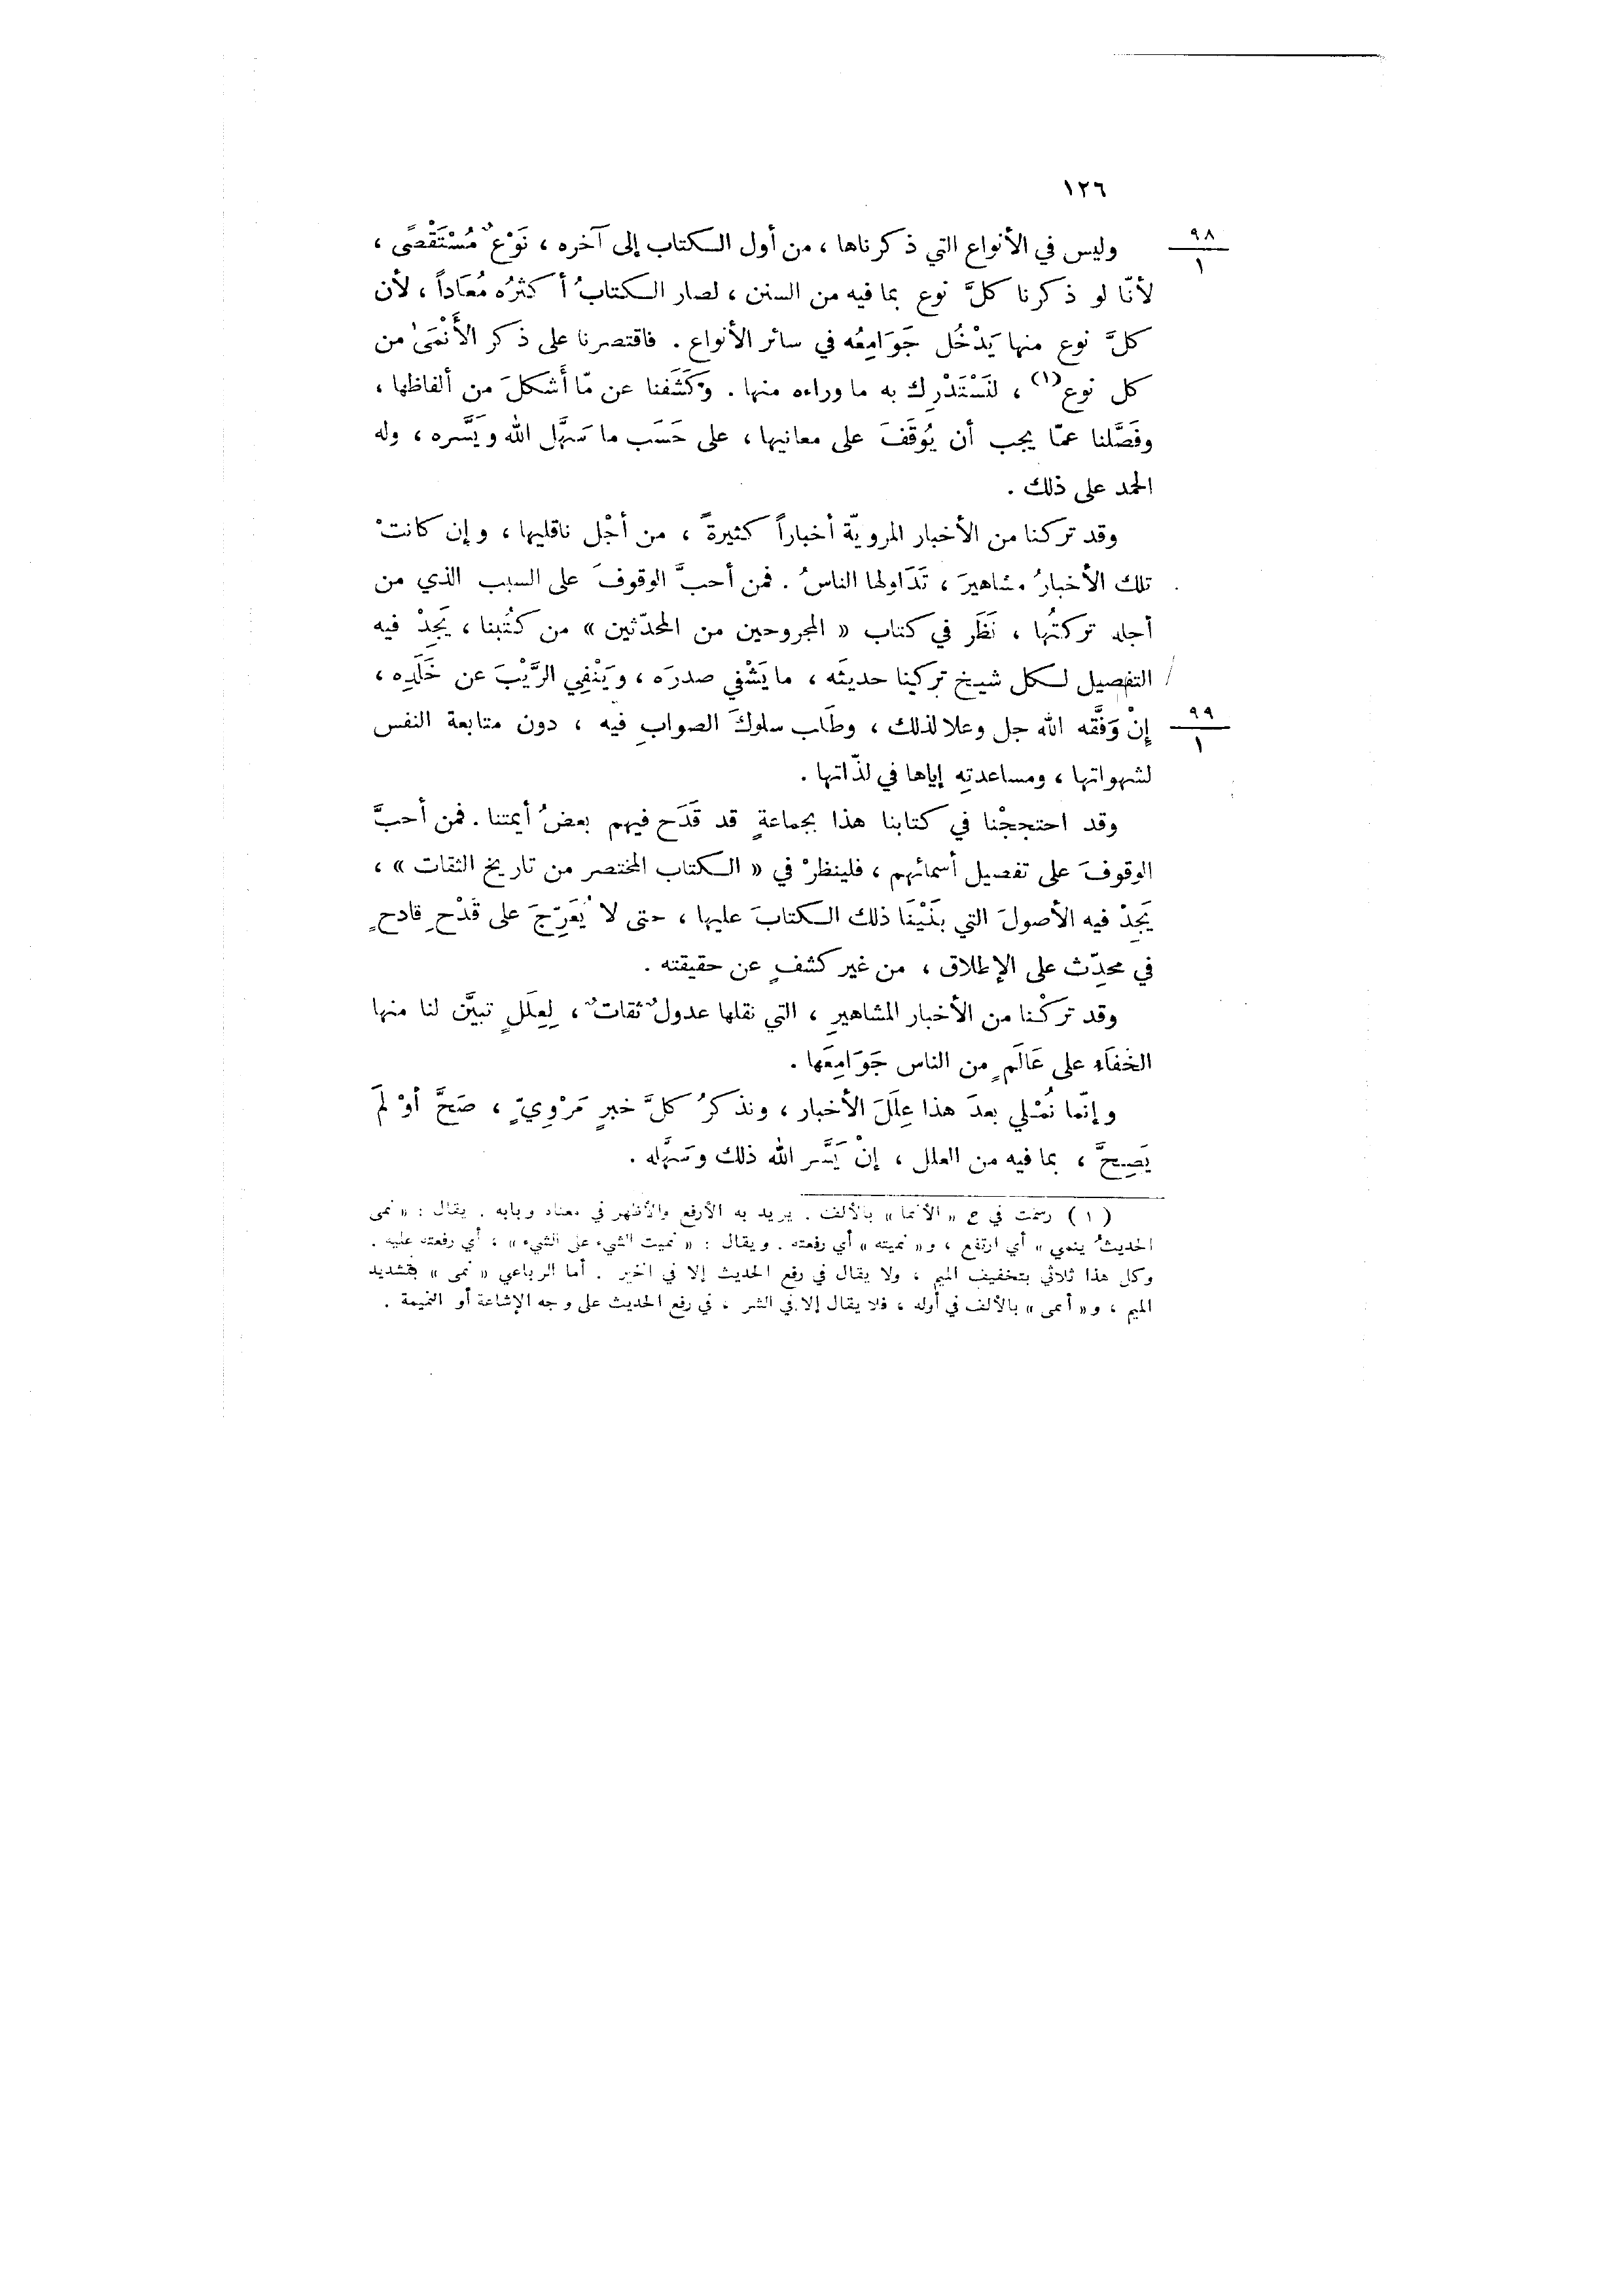 ١٢٦
٩٨
١
وليس في الأنواع التي ذكرناها ، من أول الكتاب إلى آخره ، نَوْعٌ مُسْتَقْصًى ،
لأنّا لو ذكرنا كلَّ نوع بما فيه من السنن ، لصار الكتابُ أكثرُه مُعَاداً ، لأن
كلَّ نوع منها يَدْخُل جَوَامِعُه في سائر الأنواع . فاقتصرنا على ذكر الأَنْمَىٰ من
كل نوع (١) ، لنَسْتَدْرِك به ما وراءه منها . وَكَشَفنا عن مّا أَشكلَ من ألفاظها ،
وفَصَّلنا عمّا يجب أن يُوقَفَ على معانيها ، على حَسَب ما سَهَّل الله ويَسَّره ، وله
الحمد على ذلك .
وقد تركنا من الأخبار المرويّة أخباراً كثيرةً ، من أجْل ناقليها ، وإن كانتْ
تلك الأخبارُ مشاهيرَ ، تَدَاولها الناسُ . فمن أحبَّ الوقوفَ على السبب الذي من
أجله تركتُها ، نَظَر في كتاب « المجروحين من المحدّثين » من كُتُبنا ، يَجِدْ فيه
التفصيل لكل شيخ تركنا حديثَه ، ما يَشْفي صدرَه ، ويَنْفِي الرَّيْبَ عن خَلَدِه ،
٩٩
١
إِنْ وَفَّقه الله جل وعلا لذلك ، وطَلب سلوكَ الصوابِ فيه ، دون متابعة النفس
لشهواتها ، ومساعدتِه إياها في لذّاتها .
وقد احتججْنا في كتابنا هذا بجماعةٍ قد قَدَح فيهم بعضُ أيمتنا . فمن أحبَّ
الوقوفَ على تفصيل أسمائهم ، فلينظرْ في « الكتاب المختصر من تاريخ الثقات » ،
يَجِدْ فيه الأصولَ التي بَنَيْنَا ذلك الكتابَ عليها ، حتى لا يُعَرِّجَ على قَدْحِ قادحٍ
في محدِّث على الإطلاق ، من غير كشفٍ عن حقيقته .
وقد تركْنا من الأخبار المشاهيرِ ، التي نقلها عدولٌ ثقاتٌ ، لِعِلَلٍ تبيَّن لنا منها
الخفَاء على عَالَمٍ من الناس جَوَامِعَها .
وإنّما نُمْلي بعدَ هذا عِلَلَ الأخبار ، ونذكرُ كلَّ خبرٍ مَرْوِيٍّ ، صَحَّ أوْ لَمْ
يَصِحَّ ، بما فيه من العلل ، إنْ يَسَّر الله ذلك وسَهَّله .
(١) رسمت في ع « الأنما » بالألف . يريد به الأرفع والأظهر في معناه وبابه . يقال : « نمى
الحديثُ ينمي » أي ارتفع ، و« نميته » أي رفعته . ويقال : « نميت الشيء على الشيء » ، أي رفعته عليه .
وكل هذا ثلاثي بتخفيف الميم ، ولا يقال في رفع الحديث إلا في الخير . أما الرباعي « نمى » بتشديد
الميم ، و« أنمى » بالألف في أوله ، فلا يقال إلا في الشر ، في رفع الحديث على وجه الإشاعة أو النميمة .